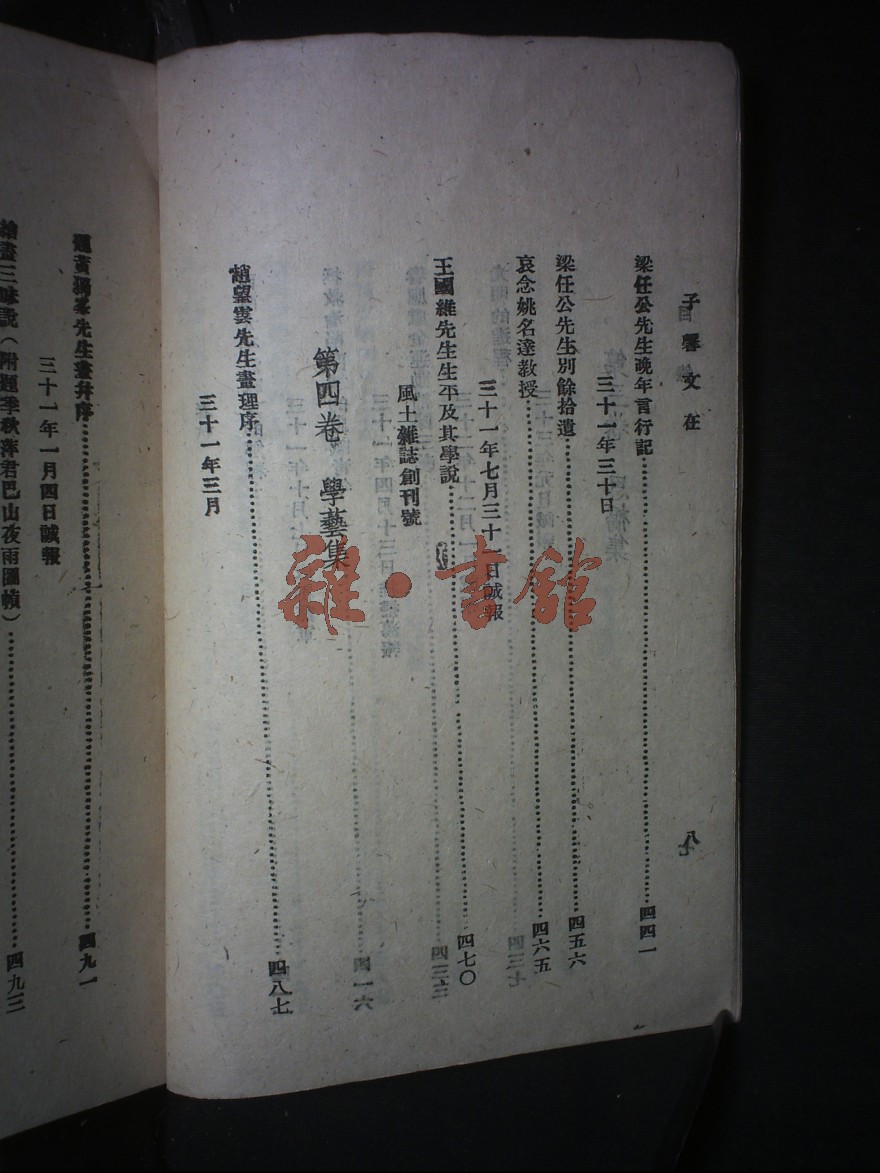 子馨文在
梁任公先生晚年言行記……四四一
三十一年三十日
梁任公先生別餘拾遺……四五六
哀念姚名達教授……四六五
三十一年七月三十一日誠報
王國維先生生平及其學說……四七〇
風土雜誌創刊號
第四卷 學藝集
趙望雲先生畫理序……四八七
三十一年三月
題黃獨峯先生畫并序……四九一
三十一年一月四日誠報
繪畫三昧說（附題季秋萍君巴山夜雨圖幀）……四九三
雜·書館